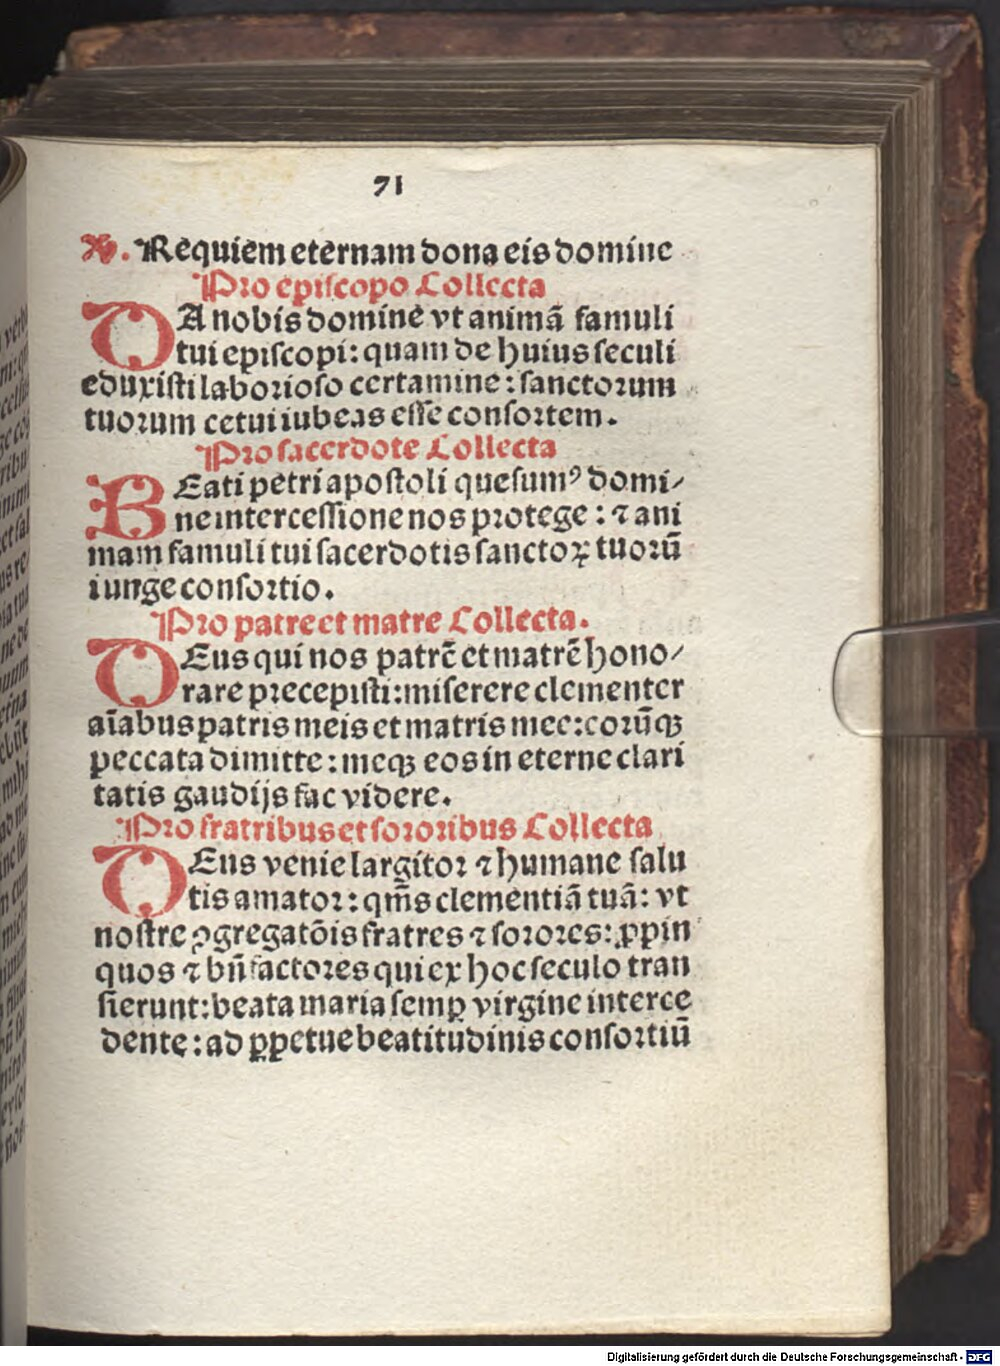 71
℣. Requiem eternam dona eis domine
Pro episcopo Collecta
DA nobis domine vt animā famuli
tui episcopi: quam de huius seculi
eduxisti laborioso certamine: sanctorum
tuorum cetui iubeas esse consortem.
Pro sacerdote Collecta
BEati petri apostoli quesumꝰ domi⸗
ne intercessione nos protege: ⁊ ani
mam famuli tui sacerdotis sanctoꝝ tuorū
iunge consortio.
Pro patre et matre Collecta.
DEus qui nos patrē et matrē hono⸗
rare precepisti: miserere clementer
aīabus patris meis et matris mee: eorūqꝫ
peccata dimitte: meqꝫ eos in eterne clari
tatis gaudijs fac videre.
Pro fratribus et sororibus Collecta
DEus venie largitor ⁊ humane salu
tis amator: qm̄s clementiā tuā: vt
nostre ꝯgregatōis fratres ⁊ sorores: ꝓpin
quos ⁊ bn̄factores qui ex hoc seculo tran
sierunt: beata maria semꝑ virgine interce
dente: ad ꝑpetue beatitudinis consortiū
Digitalisierung gefördert durch die Deutsche Forschungsgemeinschaft - DFG